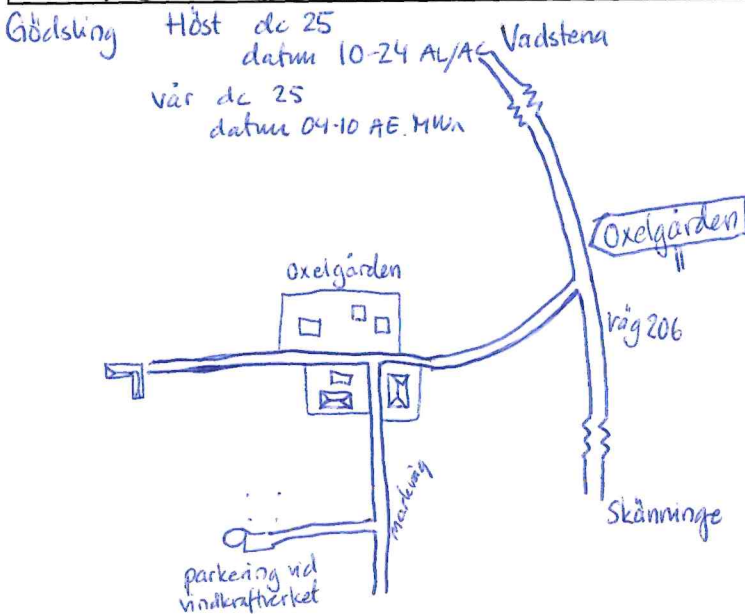 Gödsling Höst dc 25
datum 10-24 AL/AC
vår dc 25
datum 04-10 AE. MWn
Vadstena
Oxelgården
Oxelgården
väg 206
markväg
Skänninge
parkering vid
vindkraftverket